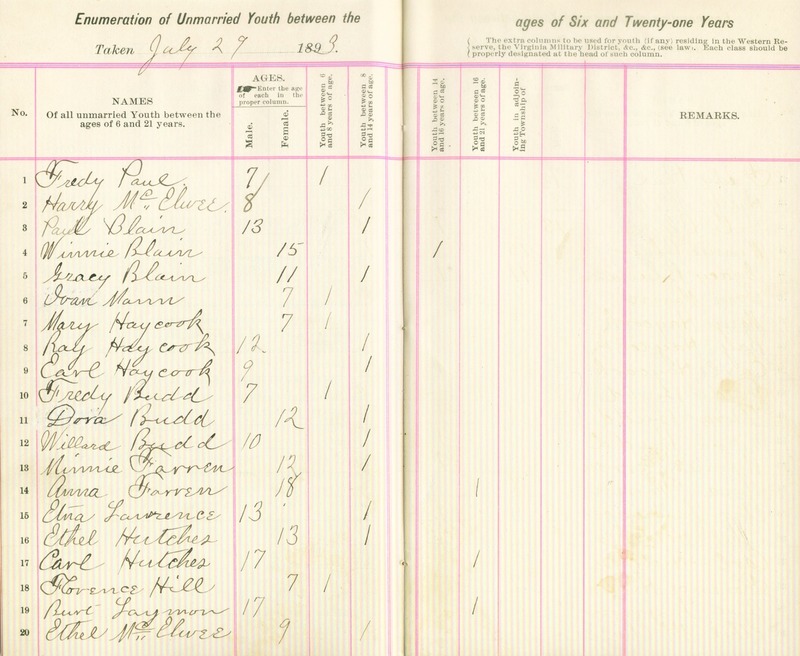 Enumeration of Unmarried Youth between the ages of Six and Twenty-one Years
Taken July 27 1893.
The extra columns to be used for youth (if any) residing in the Western Re-
serve, the Virginia Military District, &c., &c., (see law). Each class should be
properly designated at the head of such column.
No.
NAMES
Of all unmarried Youth between the
ages of 6 and 21 years.
AGES.
Enter the age
of each in the
proper column.
Male.
Female.
Youth between 6
and 8 years of age.
Youth between 8
and 14 years of age.
Youth between 14
and 16 years of age.
Youth between 16
and 21 years of age.
Youth in adjoin-
ing Township of
REMARKS.
1 Fredy Paul 7 1
2 Harry McElwee. 8 1
3 Paul Blain 13 1
4 Winnie Blain 15 1
5 Gracy Blain 11 1
6 Ivan Mann 7 1
7 Mary Haycook 7 1
8 Ray Haycook 12 1
9 Earl Haycook 9 1
10 Fredy Budd 7 1
11 Dora Budd 12 1
12 Willard Budd 10 1
13 Minnie Farren 12 1
14 Anna Farren 18 1
15 Lawrence 13 1
16 Ethel Hutches 13 1
17 Carl Hutches 17 1
18 Florence Hill 7 1
19 Burt Laymon 17 1
20 Ethel McElwee 9 1